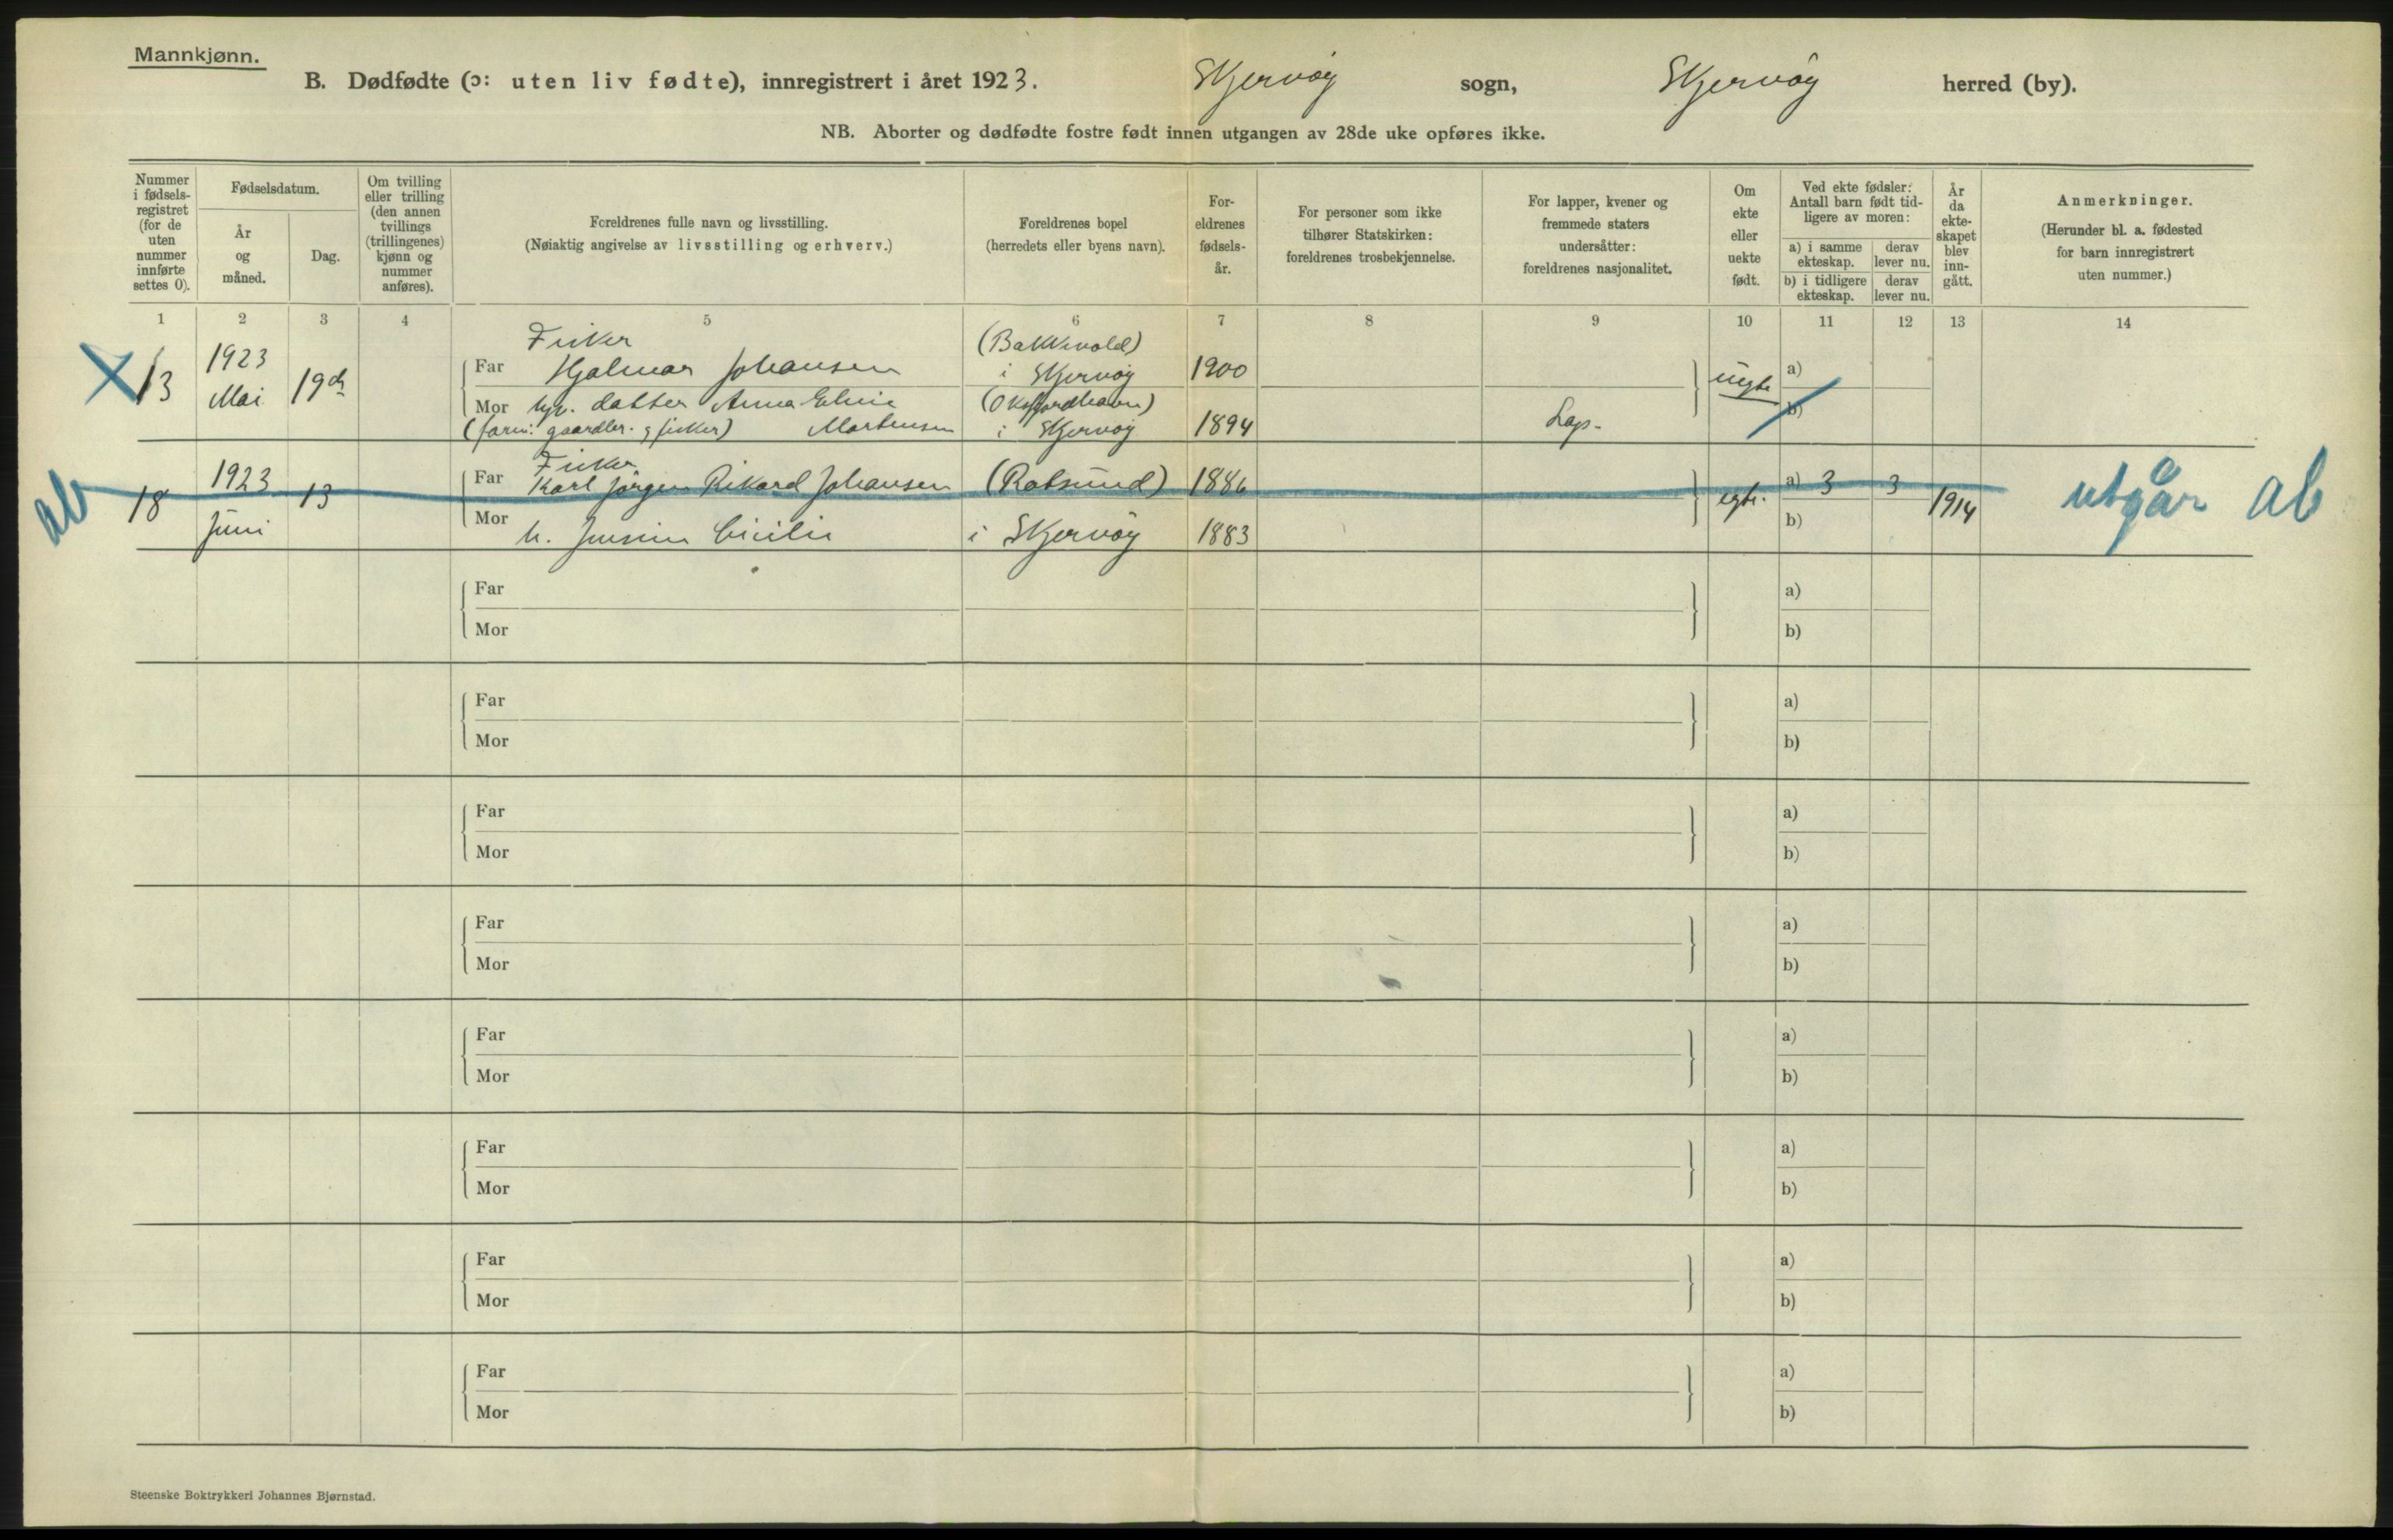 Mannkjønn.
B. Dødfødte (ɔ: uten liv fødte), innregistrert i året 1923. Skjervøy sogn, Skjervøy herred (by).
NB. Aborter og dødfødte fostre født innen utgangen av 28de uke opføres ikke.
Nummer i fødsels-registret (for de uten nummer innførte settes 0).
Fødselsdatum.
År og måned.
Dag.
Om tvilling eller trilling (den annen tvillings (trillingenes) kjønn og nummer anføres).
Foreldrenes fulle navn og livsstilling.
(Nøiaktig angivelse av livsstilling og erhverv.)
Foreldrenes bopel
(herredets eller byens navn).
For-eldrenes fødsels-år.
For personer som ikke tilhører Statskirken: foreldrenes trosbekjennelse.
For lapper, kvener og fremmede staters undersåtter: foreldrenes nasjonalitet.
Om ekte eller uekte født.
Ved ekte fødsler: Antall barn født tid-ligere av moren:
a) i samme ekteskap.
derav lever nu.
b) i tidligere ekteskap.
derav lever nu.
År da ekte-skapet blev inn-gått.
Anmerkninger.
(Herunder bl. a. fødested for barn innregistrert uten nummer.)
1 2 3 4 5 6 7 8 9 10 11 12 13 14
Fisker (Bakkevold)
13 1923 Mai 19de Far Hjalmar Johansen i Skjervøy 1900 uegte a)
Mor ugv. datter Anna Elvie (Oksfjordhavn) b)
(farm: gaardbr. & fisker) Martensen i Skjervøy 1894 Lap.
Fisker
ab 18 1923 13 Far Karl Jørgen Rikard Johansen (Rotsund) 1886 egte. a) 3 3 1914 utgår ab
Juni Mor h. Jensine Cicilie i Skjervøy 1883 b)
Far a)
Mor b)
Far a)
Mor b)
Far a)
Mor b)
Far a)
Mor b)
Far a)
Mor b)
Far a)
Mor b)
Far a)
Mor b)
Far a)
Mor b)
Steenske Boktrykkeri Johannes Bjørnstad.